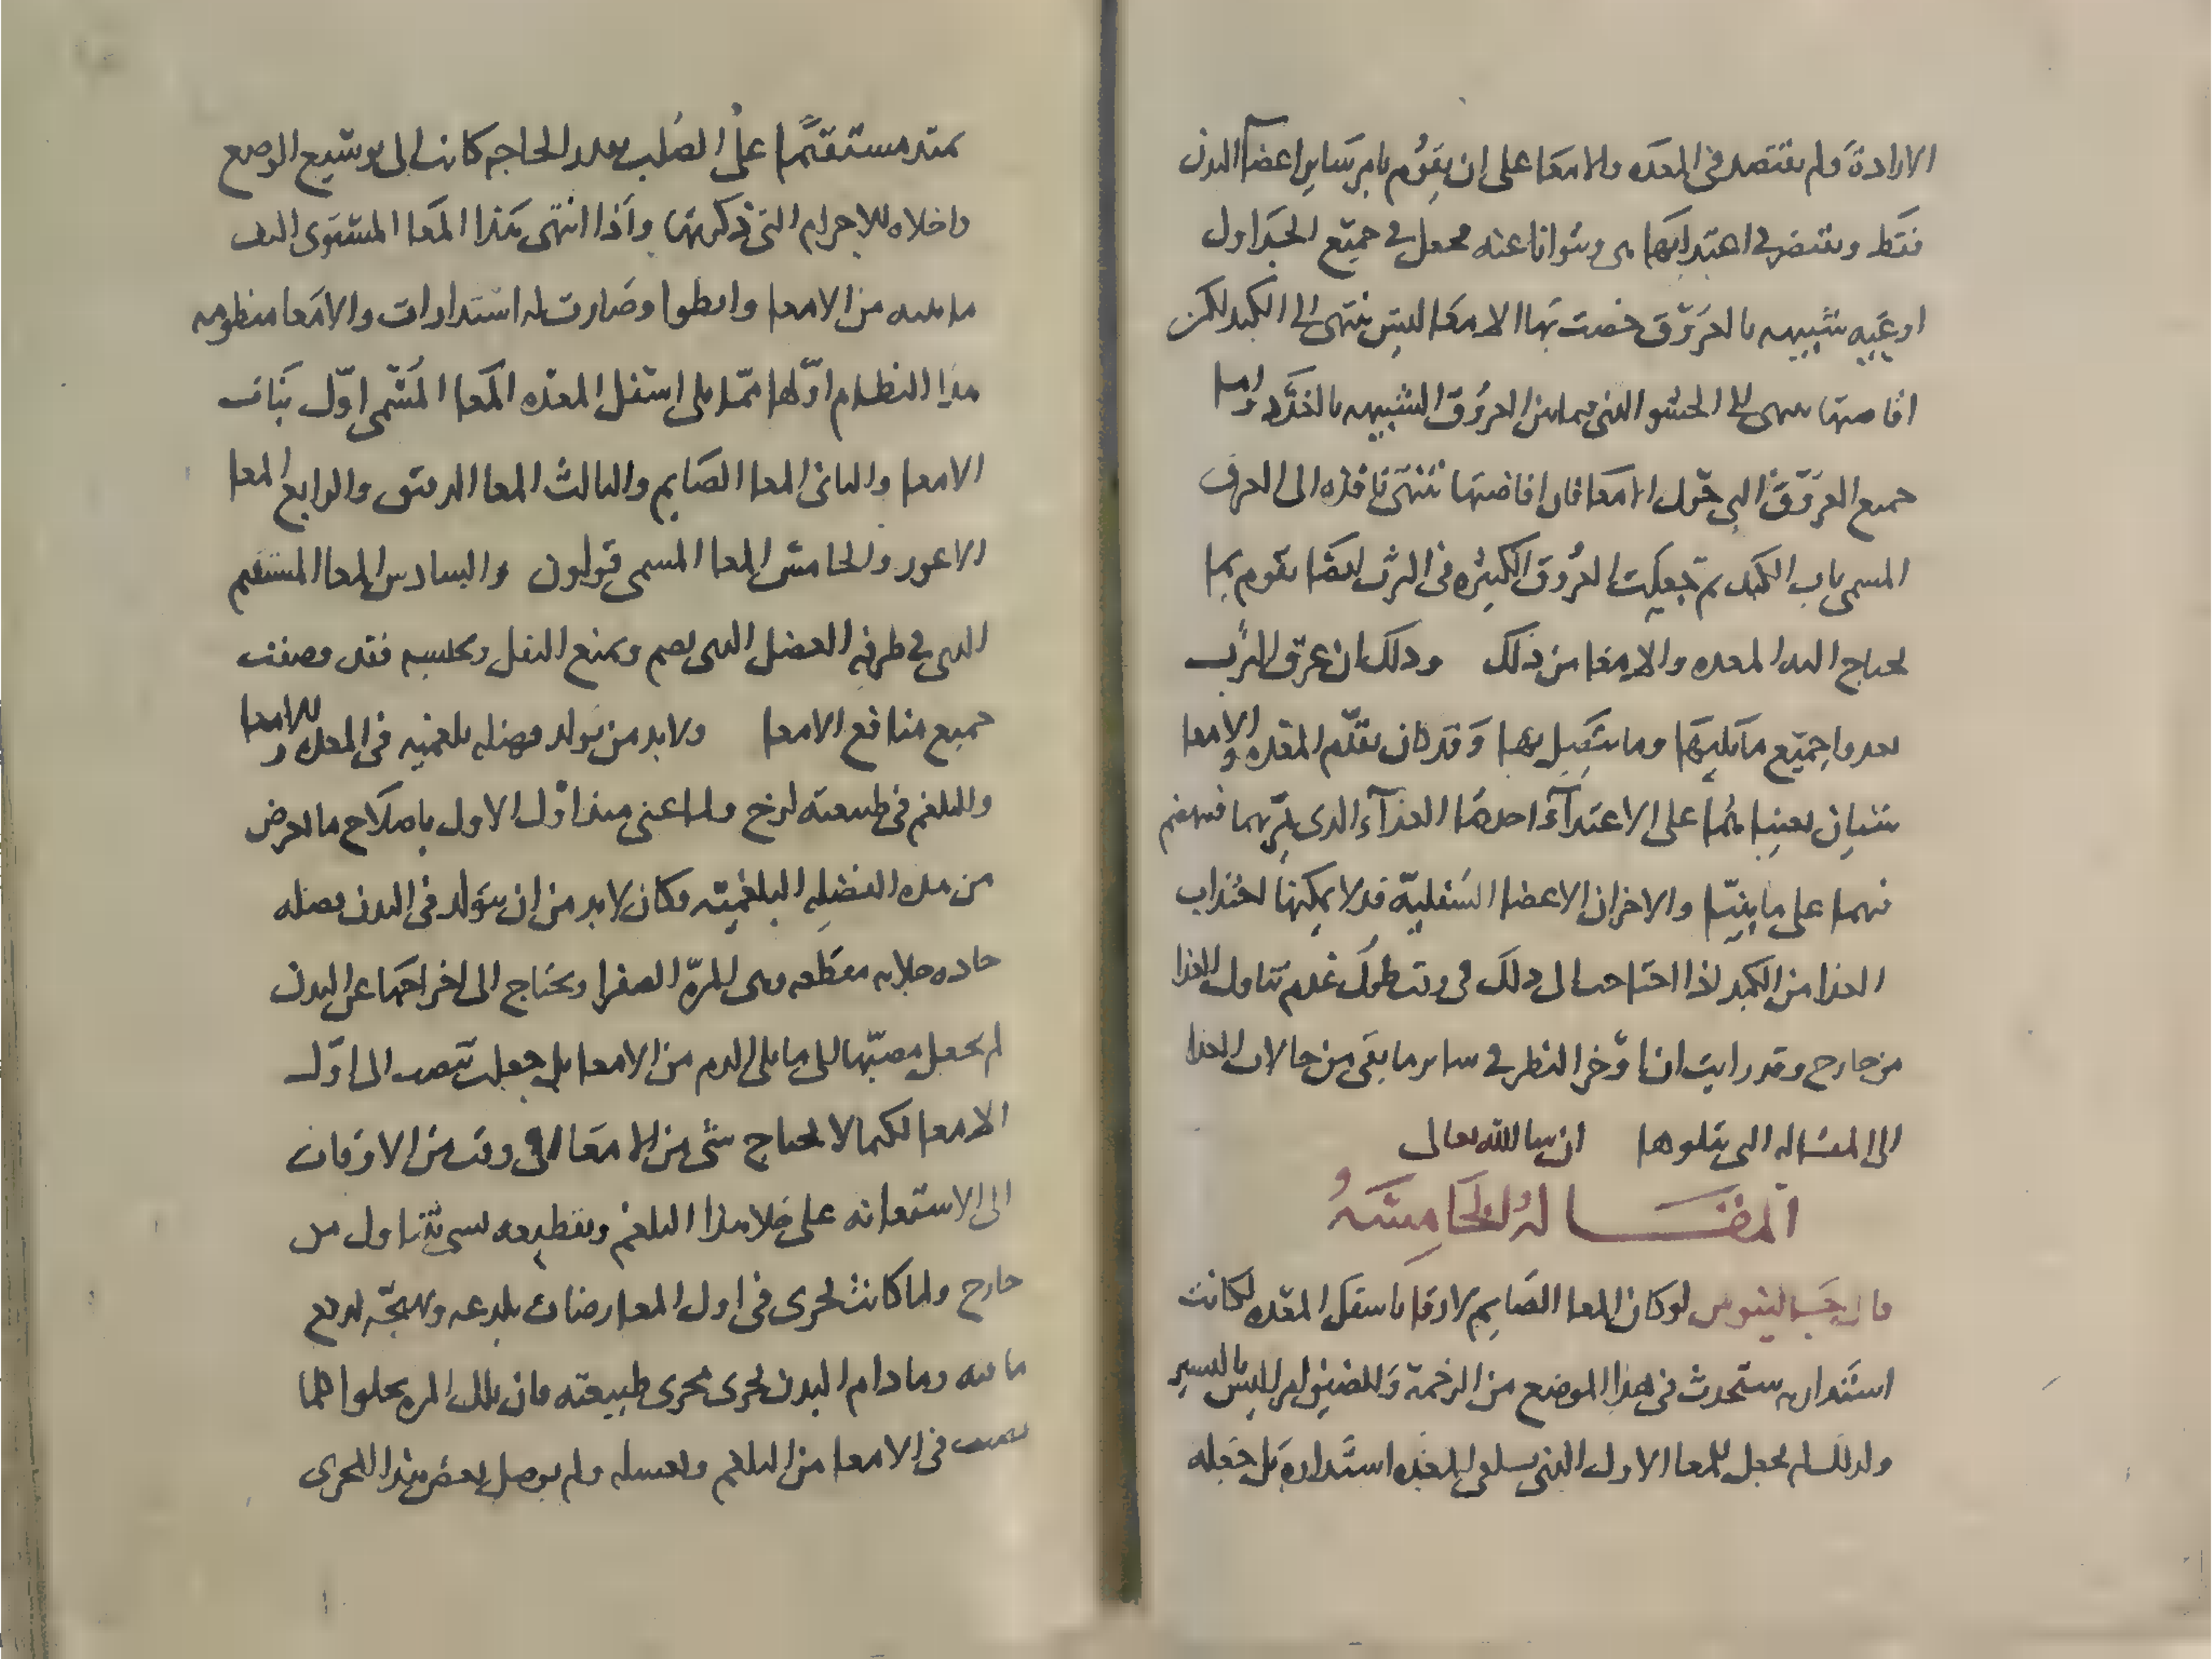 الارادة ولم يقتصد في المعده والامعا على ان يقوم بامر ساير اعضآ البدن
فقط وينتضر في اغتدايها وشوانا عنه فجعل في جميع الجداول
اوعيه شبيهه بالعروق خصت بها الامعا ليس تنتهي الى الكبد لكن
افاضتها تنتهي الى الحشو الذي فيما بين العروق الشبيهه بالغدد واما
جميع العروق التي حول الامعا فان افاضتها تنتهي نافذه الى العرق
المسمى باب الكبد ثم جعلت العروق الكثيره في الثرب ايضا تقوم بما
يحتاج اليه المعده والامعا من ذلك وذلك ان عروق الثرب
تغدوا جميع ما يليها وما يتصل بها وقد كان يقدم المعده والامعا
شيان يعينانهما على الاغتدآء احدهما الغدآء الدى يمر بهما فينهضم
فيهما على ما بينا والاخر ان الاعضا السفلية قد لا يمكنها اجتداب
الغدا من الكبد اذا احتاجت الى ذلك في وقت طول عدم تناول الغدا
من خارج وقد رايت ان اؤخر النظر في ساير ما بقى من حالات الغدا
الى المقاله التي يتلوها ان شا الله تعالى
المقالة الخامسة
قال جالينوس لو كان المعا الصايم لازقا باسفل المعده لكانت
استداره ستحدث في هذا الموضع من الزحمة والضيق امر ليس باليسير
ولذلك لم يجعل للمعا الاول الذي يلقي المعده استداره بل جعله
يمتد مستقيما على الصلب بقدر الحاجه كانت الى توسيع الموضع
واخلاه للاجرام التي ذكرتها واذا انتهى هذا المعا المستوى التف
ما يليه من الامعا وانطوا وصارت له استدارات والامعا منظومه
هذا النظام اولها مما يلى اسفل المعده المعا المسمى اول نبات
الامعا والثانى المعا الصايم والثالث المعا الدقيق والرابع المعا
الاعور والخامس المعا المسمى قولون والسادس المعا المستقيم
الذى في طرفه العضل الذى يضم ويمنع الثفل ويحبسه فقد وصفت
جميع منافع الامعا ولا بد من تولد فضله بلغميه في المعده والامعا
والبلغم في طبيعته لزج ولما عنى منذ اول الاول باصلاح ما يعرض
من هذه الفضله البلغميه وكان لا بد من ان يتولد في البدن فضله
حاده جلايه مقطعه وهى المرة الصفرا ويحتاج الى اخراجها عن البدن
لم يجعل مصبها الى ما يلى الدم من الامعا بل جعلت تنصب الى اول
الامعا لكيما لا يحتاج شى من الامعا في وقت من الاوقات
الى الاستعانه على جلا هذا البلغم وتقطيعه بشى يتناول من
خارج ولما كانت تجرى في اول المعا وصارت تلدعه وتهيجه لدفع
ما فيه وما دام البدن يجرى مجرى طبيعته فان تلك المره يجلوا كلما
نصب في الامعا من البلغم وتغسله ولم يوصل بعض هذا المجرى